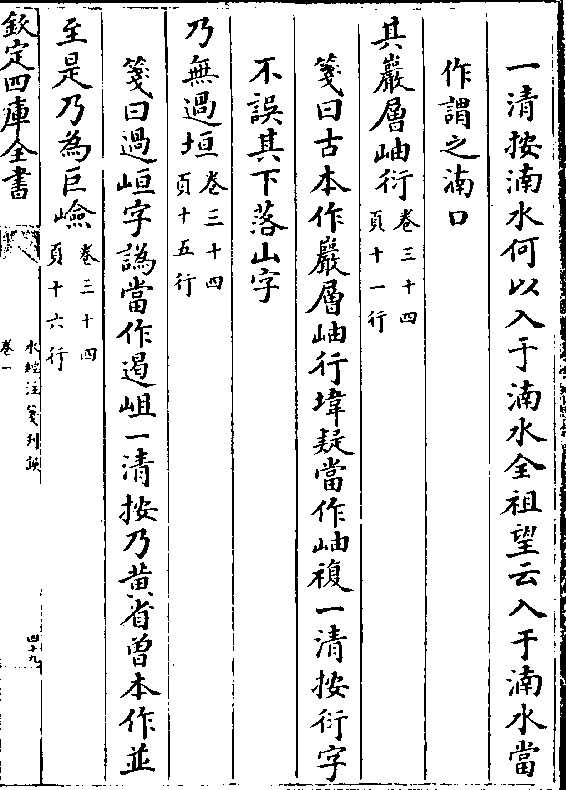 一清按湳水何以入于湳水全祖望云入于湳水當
作謂之湳口
其巖層岫衍卷三十四
頁十一行
箋曰古本作巖層岫行埠疑當作岫複一清按衍字
不誤其下落山字
乃無遏垣卷三十四
頁十五行
箋曰過峘字譌當作遏岨一清按乃黄省曾本作並
至是乃為巨嶮卷三十四
頁十六行
欽定四庫全書
水經注箋刋誤
卷一
四十九